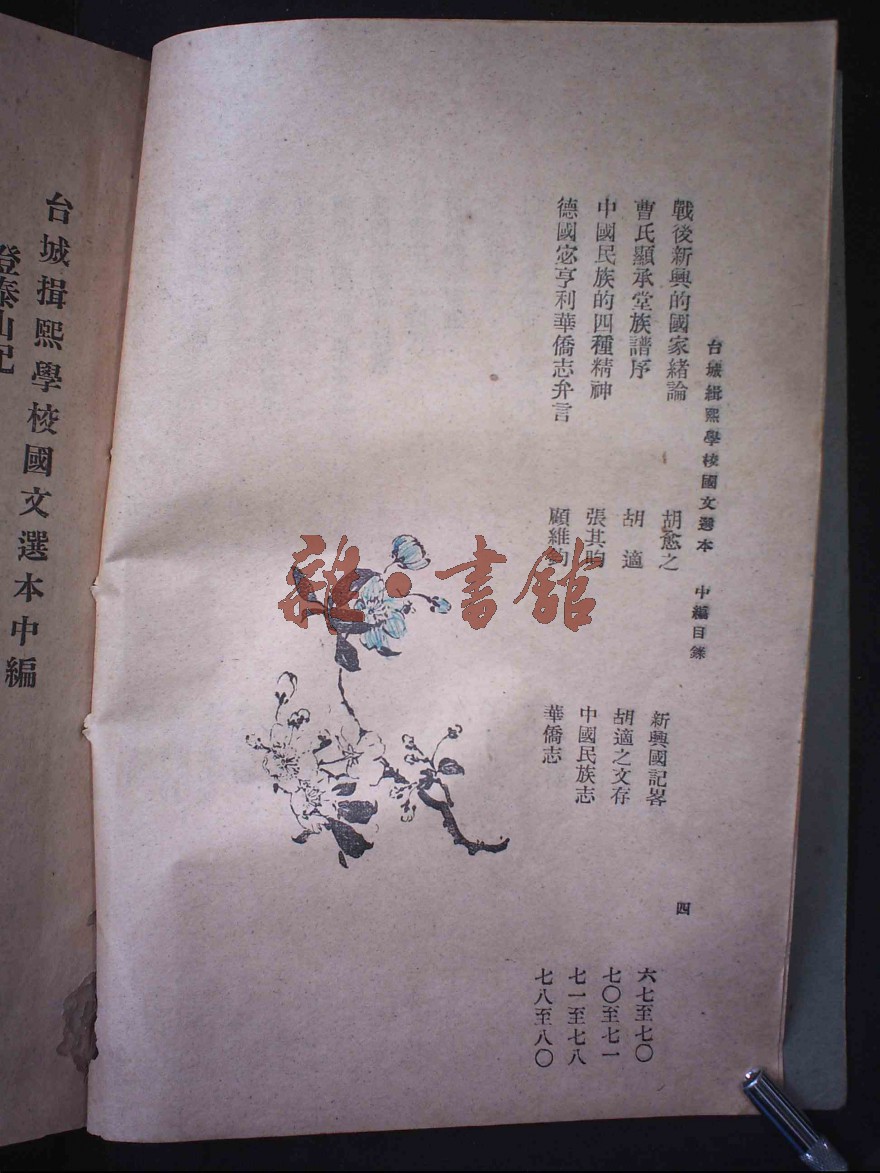 台城緝熙學校國文選本　中編目錄　四
戰後新興的國家緒論　胡愈之　新興國記畧　六七至七〇
曹氏顯承堂族譜序　胡適　胡適之文存　七〇至七一
中國民族的四種精神　張其昀　中國民族志　七一至七八
德國宓亨利華僑志弁言　顧維鈞　華僑志　七八至八〇
台城揖熙學校國文選本中編
登泰山記
雜·書館